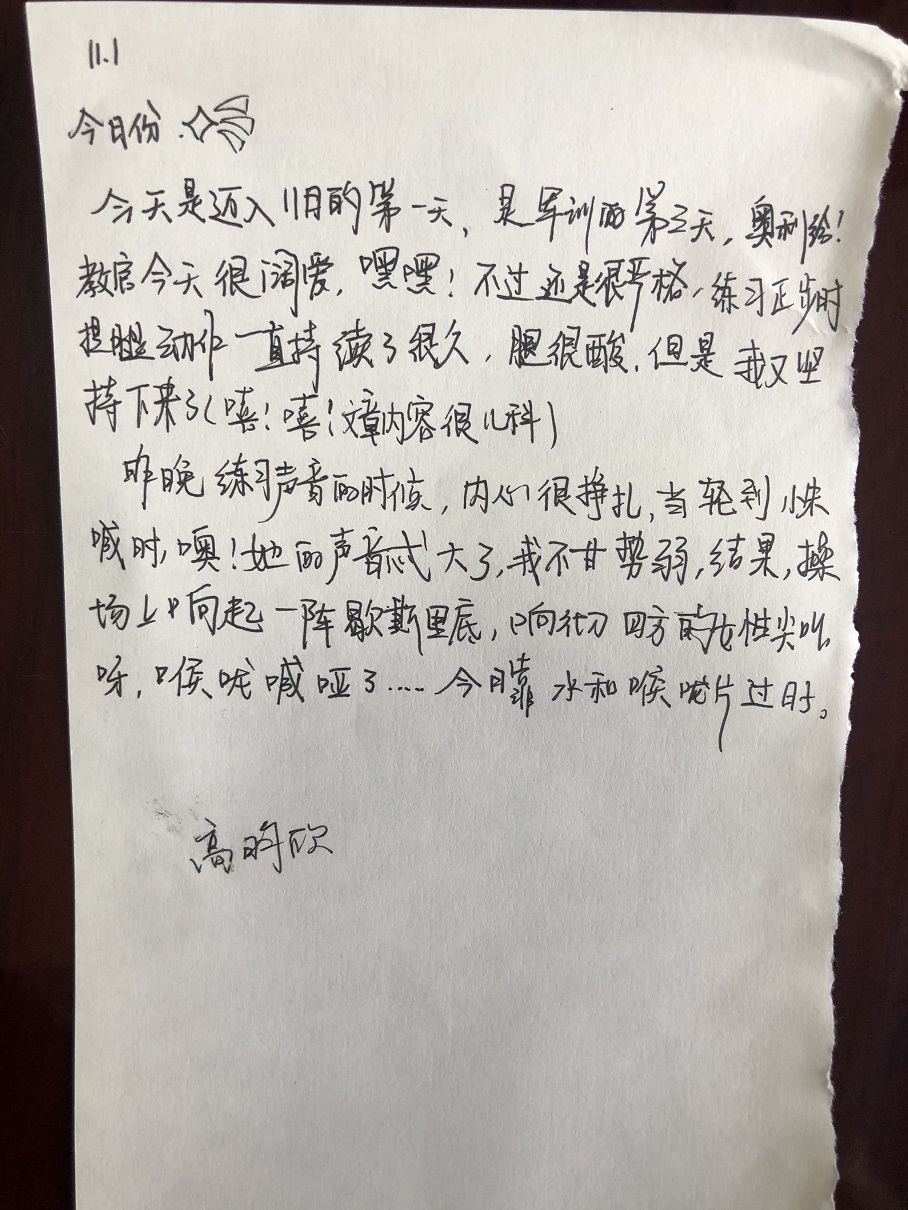 11.1
今日份
今天是迈入11月的第一天，是军训的第三天，奥利给！
教官今天很阔爱，嘿嘿！不过还是很严格，练习正步时
提腿动作一直持续了很久，腿很酸，但是我又坚
持下来了（嘻！嘻！文章内容很儿科）
昨晚练习声音的时候，内心很挣扎，当轮到小朱
喊时，噢！她的声音忒大了，我不甘势弱，结果，操
场上响起一阵歇斯里底，响彻四方的女性尖叫
呀，喉咙喊哑了……今日靠水和喉咙片过日。
高欣